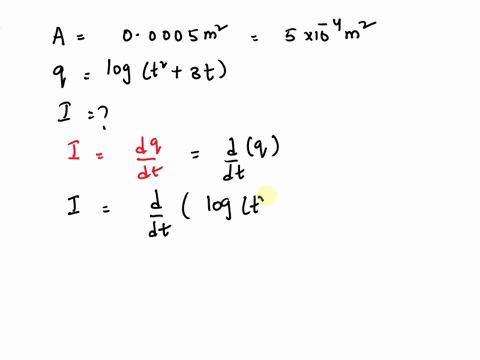 A = 0.0005m² = 5 x10⁻⁴ m²
q = log (t² + 3t)
I = ?
I = dq/dt = d/dt (q)
I = d/dt ( log (t²